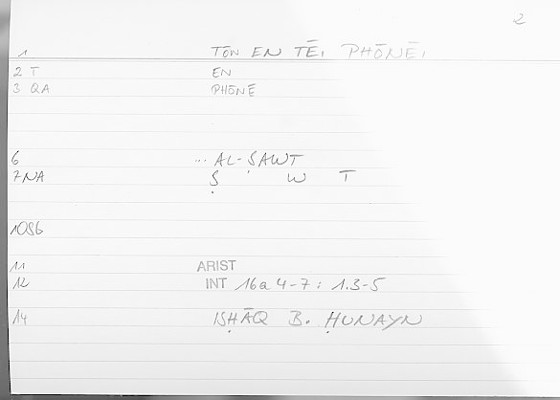 2
1 TŌN EN TĒI PHŌNĒI
2 T EN
3 QA PHŌNĒ
6 ... AL-ṢAWT
7 NA Ṣ W T
10 S6
11 ARIST
12 INT 16a 4-7 : 1.3-5
14 ISḤĀQ B. ḤUNAYN